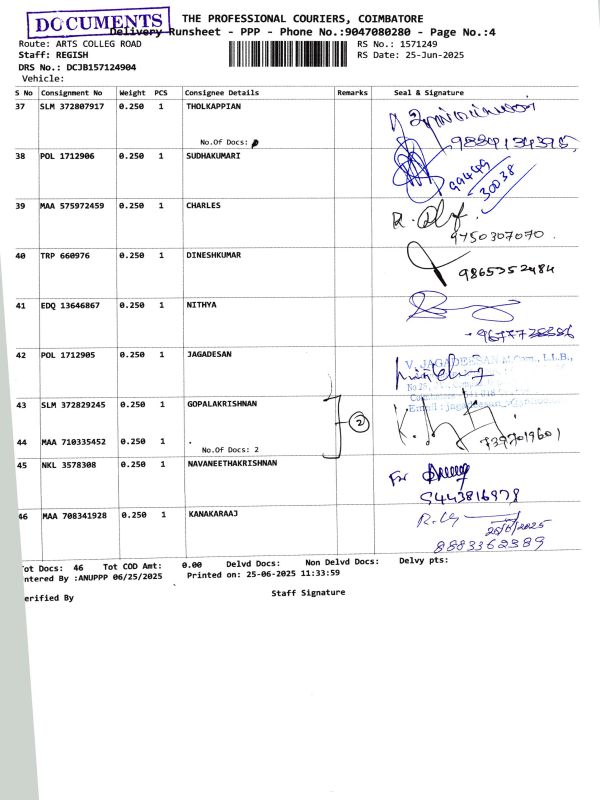 DOCUMENTS
THE PROFESSIONAL COURIERS, COIMBATORE
Delivery Runsheet - PPP - Phone No.:9047080280 - Page No.:4
Route: ARTS COLLEG ROAD
RS No.: 1571249
Staff: REGISH
RS Date: 25-Jun-2025
DRS No.: DCJB157124904
Vehicle:
S No Consignment No Weight PCS Consignee Details Remarks Seal & Signature
37 SLM 372807917 0.250 1 THOLKAPPIAN
No.Of Docs:
9884134395
38 POL 1712906 0.250 1 SUDHAKUMARI
99449
30038
39 MAA 575972459 0.250 1 CHARLES
9750307070
40 TRP 660976 0.250 1 DINESHKUMAR
9865352484
41 EDQ 13646867 0.250 1 NITHYA
42 POL 1712905 0.250 1 JAGADESAN
V. JAGADEESAN M.Com., L.L.B.,
43 SLM 372829245 0.250 1 GOPALAKRISHNAN
2
44 MAA 710335452 0.250 1 .
No.Of Docs: 2
7397019601
45 NKL 3578308 0.250 1 NAVANEETHAKRISHNAN
For
9443816978
46 MAA 708341928 0.250 1 KANAKARAAJ
25/6/2025
8883362389
Tot Docs: 46 Tot COD Amt: 0.00 Delvd Docs: Non Delvd Docs: Delvy pts:
ntered By :ANUPPP 06/25/2025 Printed on: 25-06-2025 11:33:59
erified By
Staff Signature